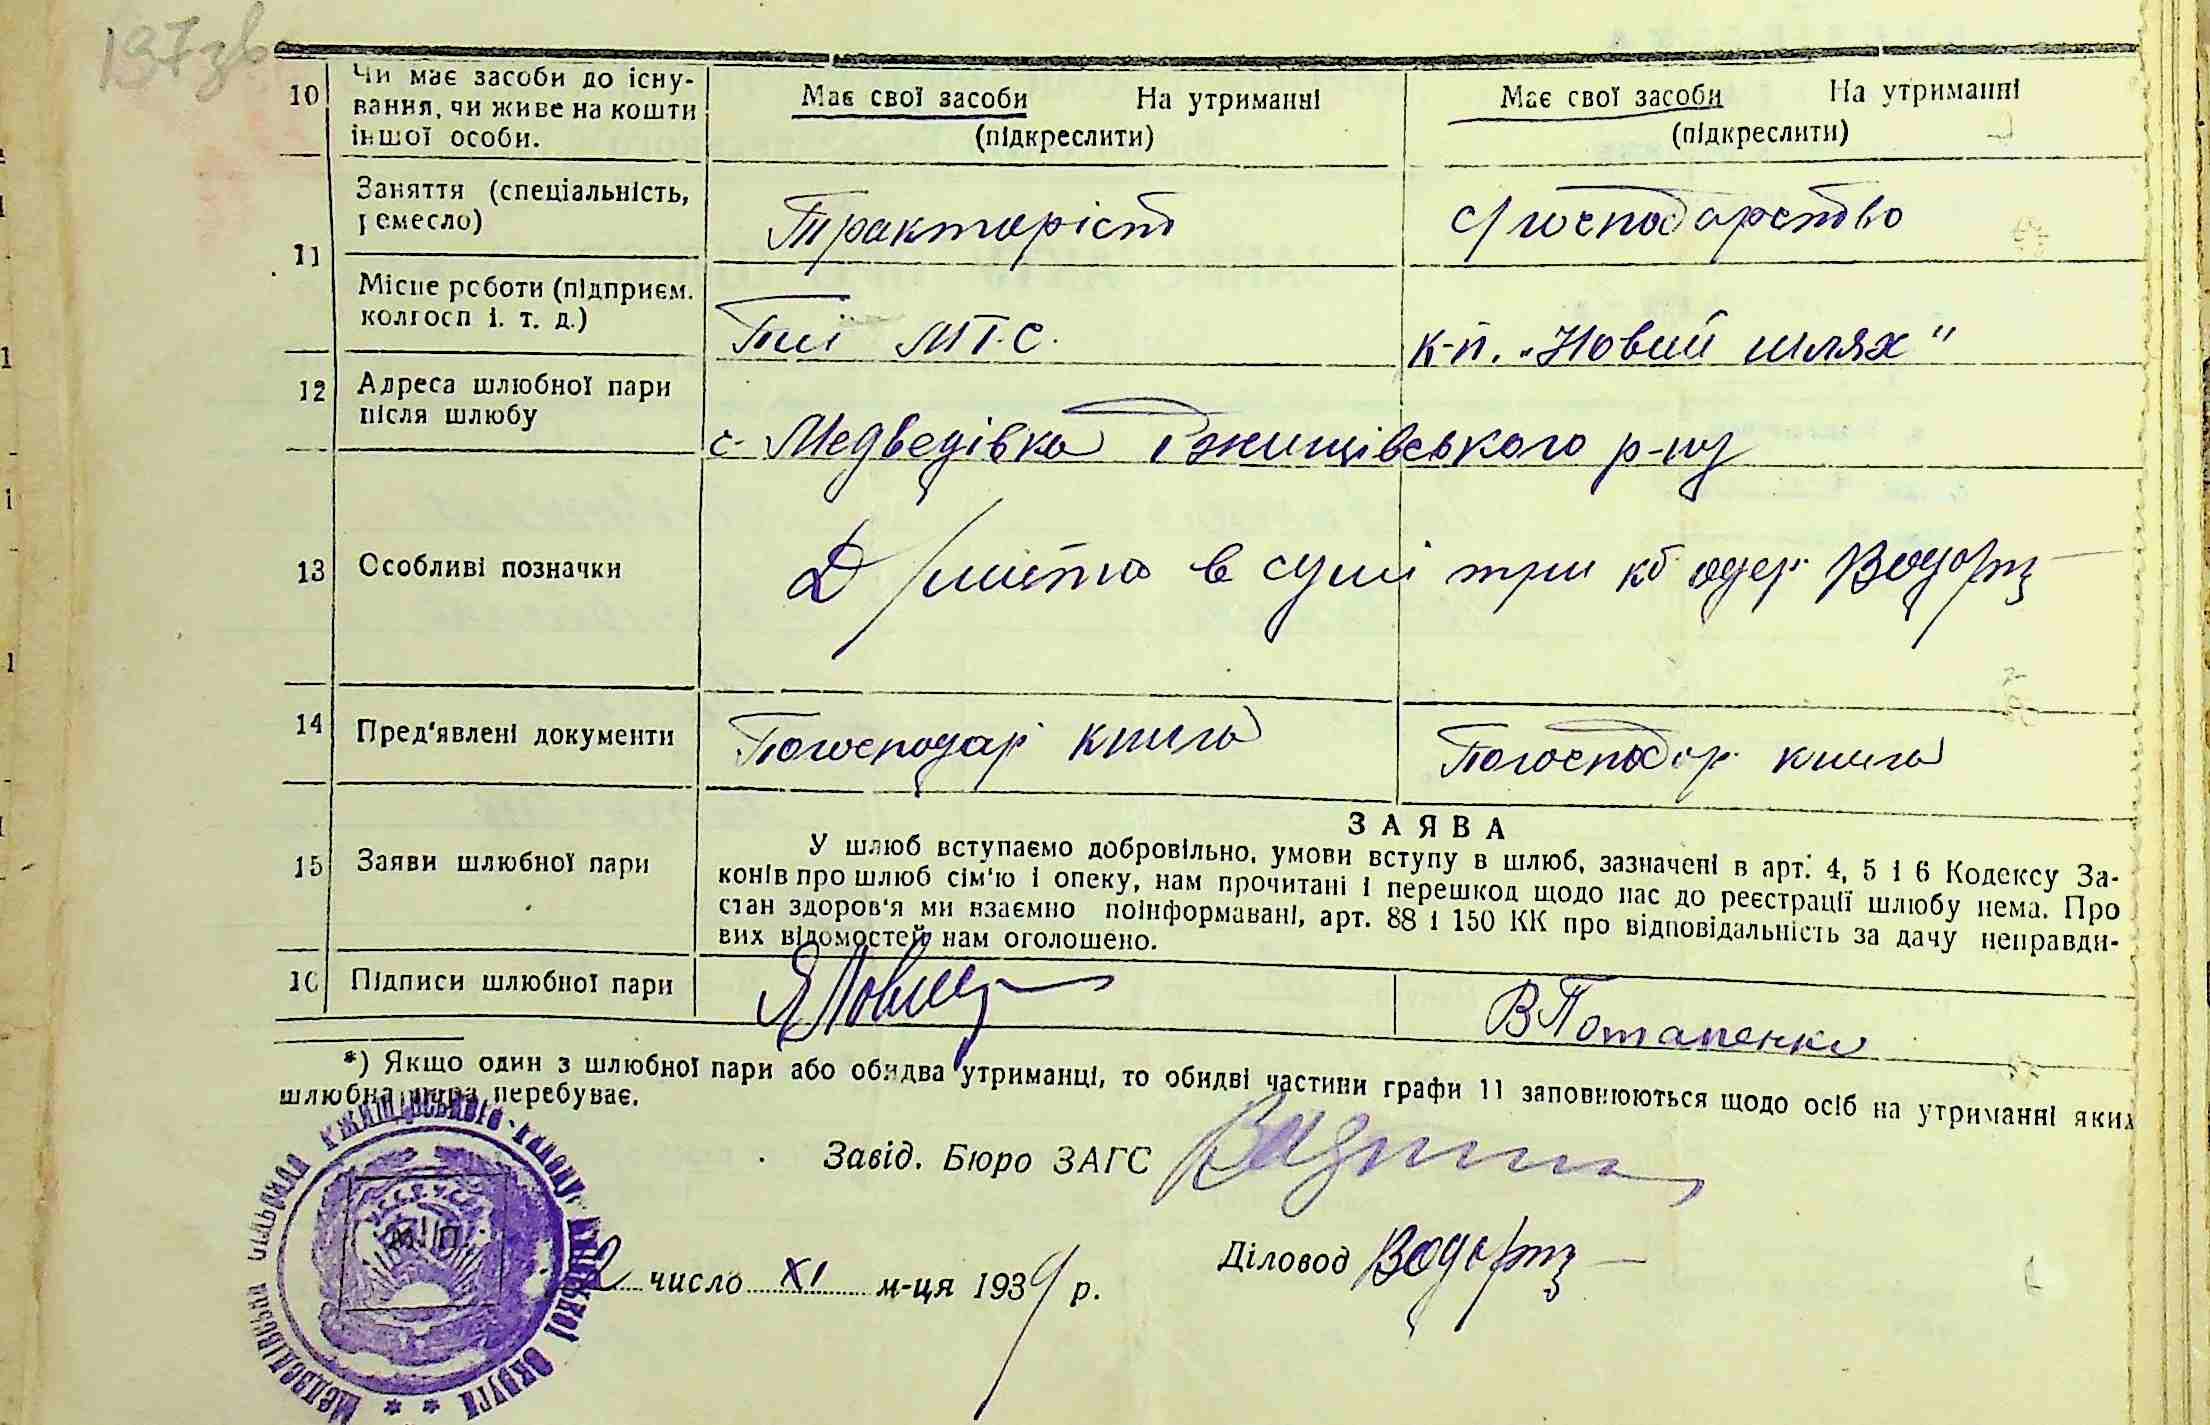 197зв
10 Чи має засоби до існу-
вання, чи живе на кошти
іншої особи.
Має свої засоби На утриманні
(підкреслити)
Має свої засоби На утриманні
(підкреслити)
11
Заняття (спеціальність,
ремесло)
Тракторіст
с/господарство
Місце роботи (підприєм.
колгосп і. т. д.)
МТ.С.
к-п. "Новий шлях"
12 Адреса шлюбної пари
після шлюбу
с. Медведівка Ржищівського р-ну
13 Особливі позначки
в сумі три кб одер.
14 Пред'явлені документи
Погосподар книга
Погосподар. книга
ЗАЯВА
15 Заяви шлюбної пари
У шлюб вступаємо добровільно, умови вступу в шлюб, зазначені в арт. 4, 5 і 6 Кодексу За-
конів про шлюб сім'ю і опеку, нам прочитані і перешкод щодо нас до реєстрації шлюбу нема. Про
стан здоров'я ми взаємно поінформавані, арт. 88 і 150 КК про відповідальність за дачу неправди-
вих відомостей нам оголошено.
16 Підписи шлюбної пари
В Потапенко
*) Якщо один з шлюбної пари або обидва утриманці, то обидві частини графи 11 заповнюються щодо осіб на утриманні яких
шлюбна пара перебуває.
Завід. Бюро ЗАГС
Діловод
2 число XI м-ця 1939 р.
М. П.
Медведівська сільрада Ржищівського району Київської округи